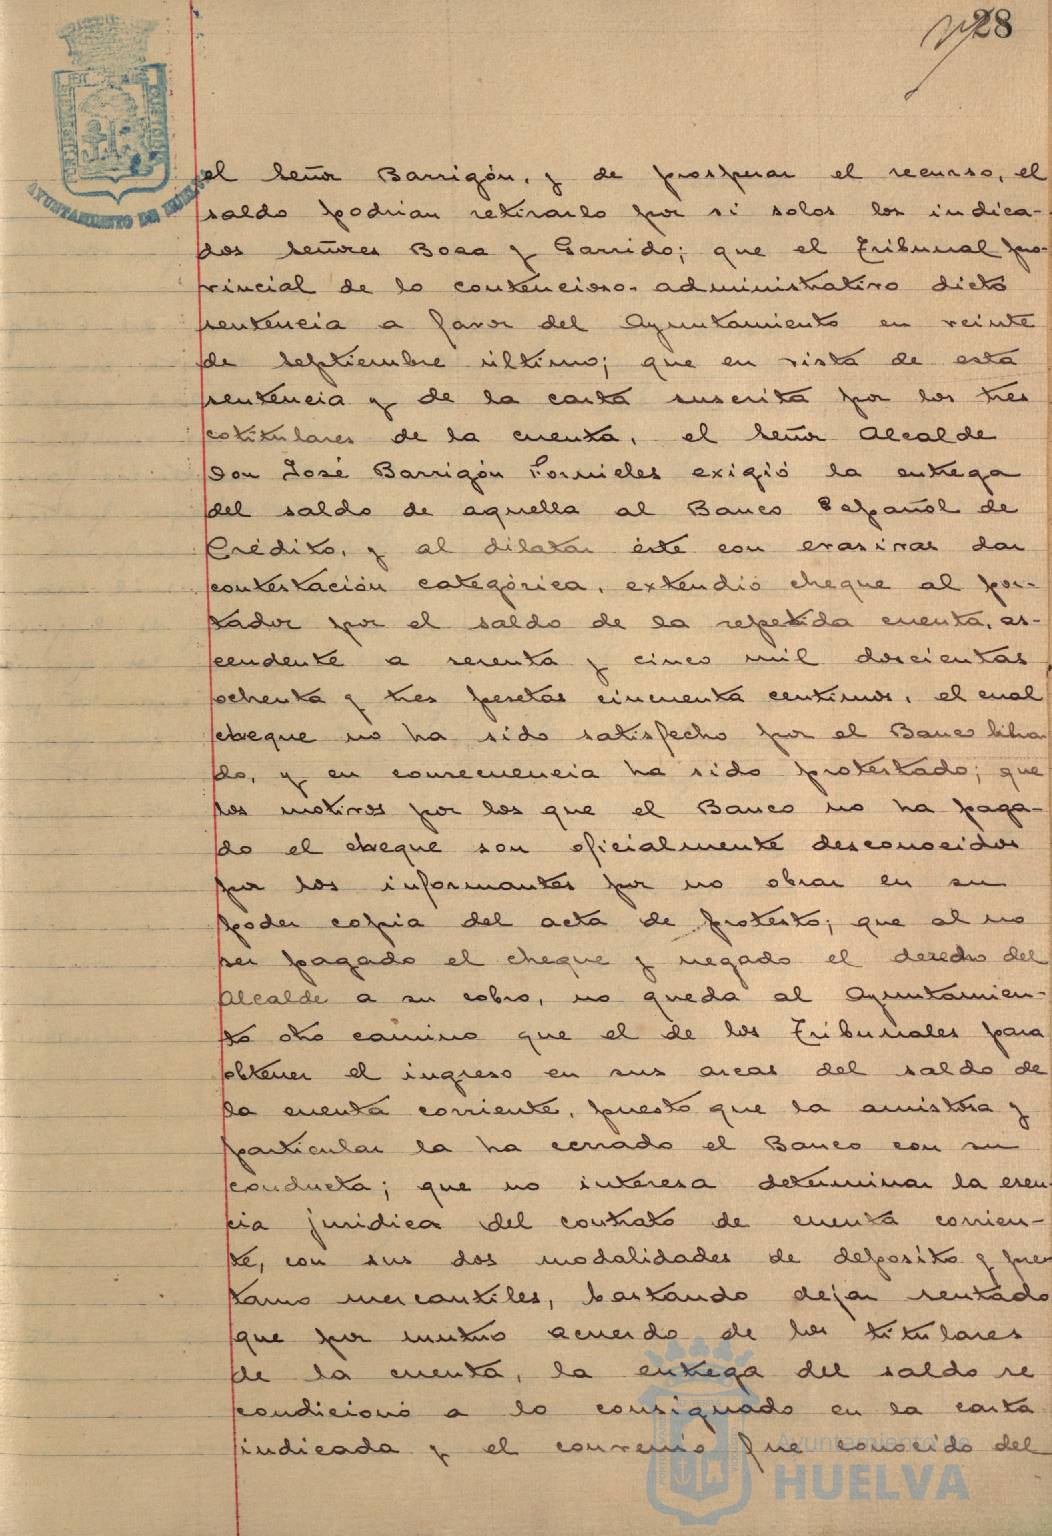 28
AYUNTAMIENTO DE HUELVA
el Señor Barrigón, y de prosperar el recurso, el
saldo podrían retirarlo por si solos los indica-
dos Señores Boza y Garrido; que el Tribunal pro-
vincial de lo contencioso-administrativo dictó
sentencia a favor del Ayuntamiento en veinte
de Septiembre último; que en vista de esta
sentencia y de la carta suscrita por los tres
cotitulares de la cuenta, el Señor Alcalde
Don José Barrigón Fornieles exigió la entrega
del saldo de aquella al Banco Español de
Crédito, y al dilatar éste con evasivas dar
contestación categórica, extendió cheque al por-
tador por el saldo de la repetida cuenta, as-
cendente a sesenta y cinco mil doscientas
ochenta y tres pesetas cincuenta centimos, el cual
cheque no ha sido satisfecho por el Banco libra
do, y en consecuencia ha sido protestado; que
los motivos por los que el Banco no ha paga-
do el cheque son oficialmente desconocidos
por los informantes por no obrar en su
poder copia del acta de protesto; que al no
ser pagado el cheque y negado el derecho del
Alcalde a su cobro, no queda al Ayuntamien-
to otro camino que el de los Tribunales para
obtener el ingreso en sus arcas del saldo de
la cuenta corriente, puesto que la amistosa y
particular la ha cerrado el Banco con su
conducta; que no interesa determinar la esen-
cia juridica del contrato de cuenta corrien-
te, con sus dos modalidades de deposito y pres
tamo mercantiles, bastando dejar sentado
que por mutuo acuerdo de los titulares
de la cuenta, la entrega del saldo se
condicionó a lo consignado en la carta
indicada y el convenio fue conocido del
Ayuntamiento de
HUELVA